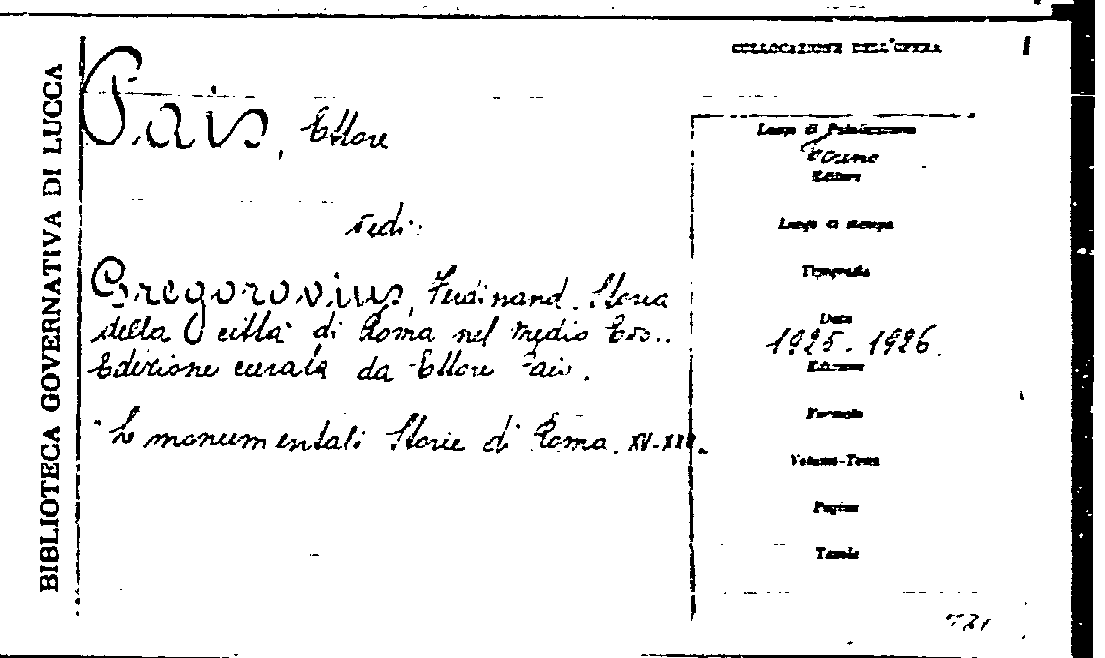 BIBLIOTECA GOVERNATIVA DI LUCCA
COLLOCAZIONE DELL'OPERA
Pais, Ettore
vedi:
Gregorovius, Ferdinand. Storia
della città di Roma nel Medio Evo..
Edizione curata da Ettore Pais.
Le monumentali Storie di Roma. XV-
Luogo di Pubblicazione
Roma
Editore
Luogo di stampa
Tipografia
Data
1925-1926.
Edizione
Formato
Volume-Tomo
Pagine
Tavole